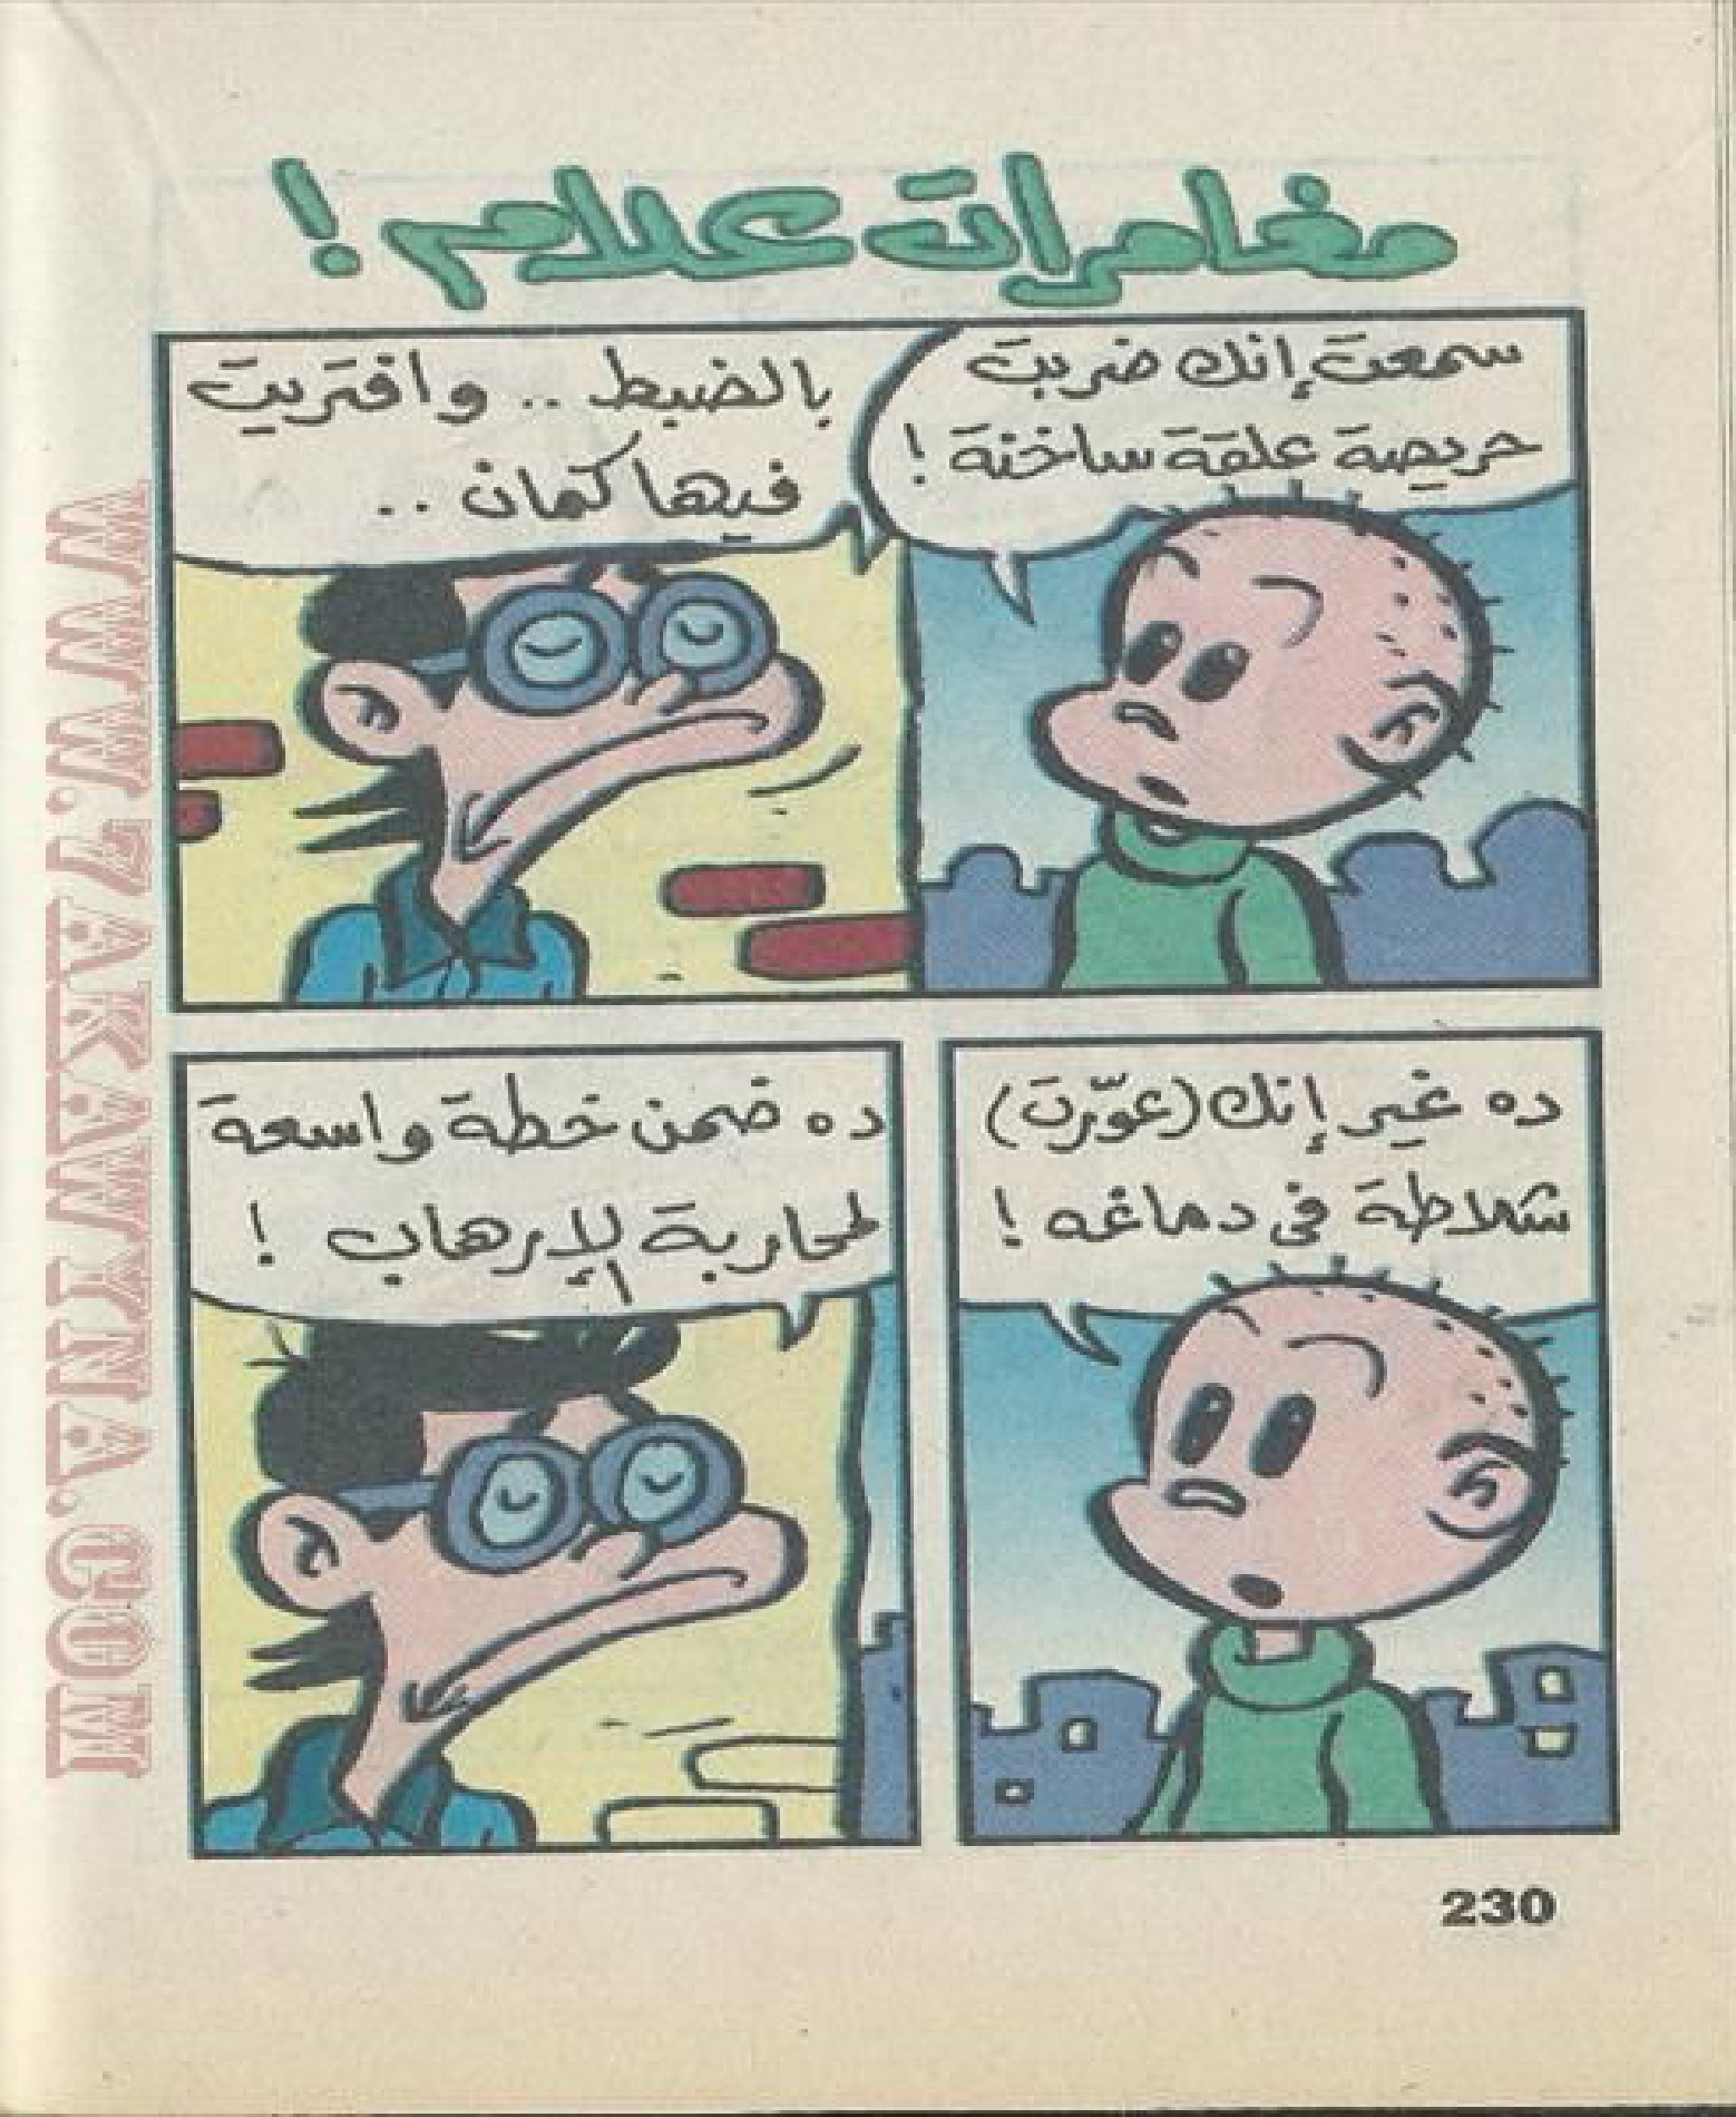 مغامرات علام !
سمعت إنك ضربت
حريصة علقة ساخنة !
بالضبط .. وافتريت
فيها كمان ..
ده غير إنك (عوّرت)
شلاطة فى دماغه !
ده ضمن خطة واسعة
لمحاربة الإرهاب !
230
WWW.ZAKAWTNA.COM